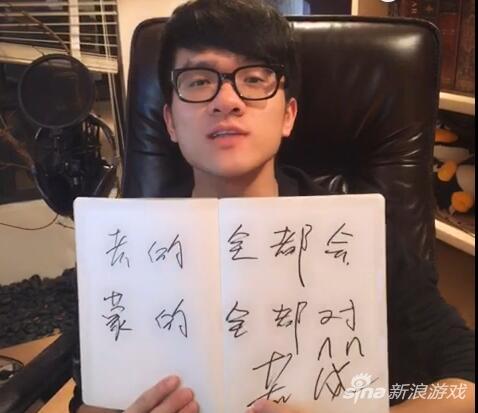 考的全都会
蒙的全部对
sina新浪游戏